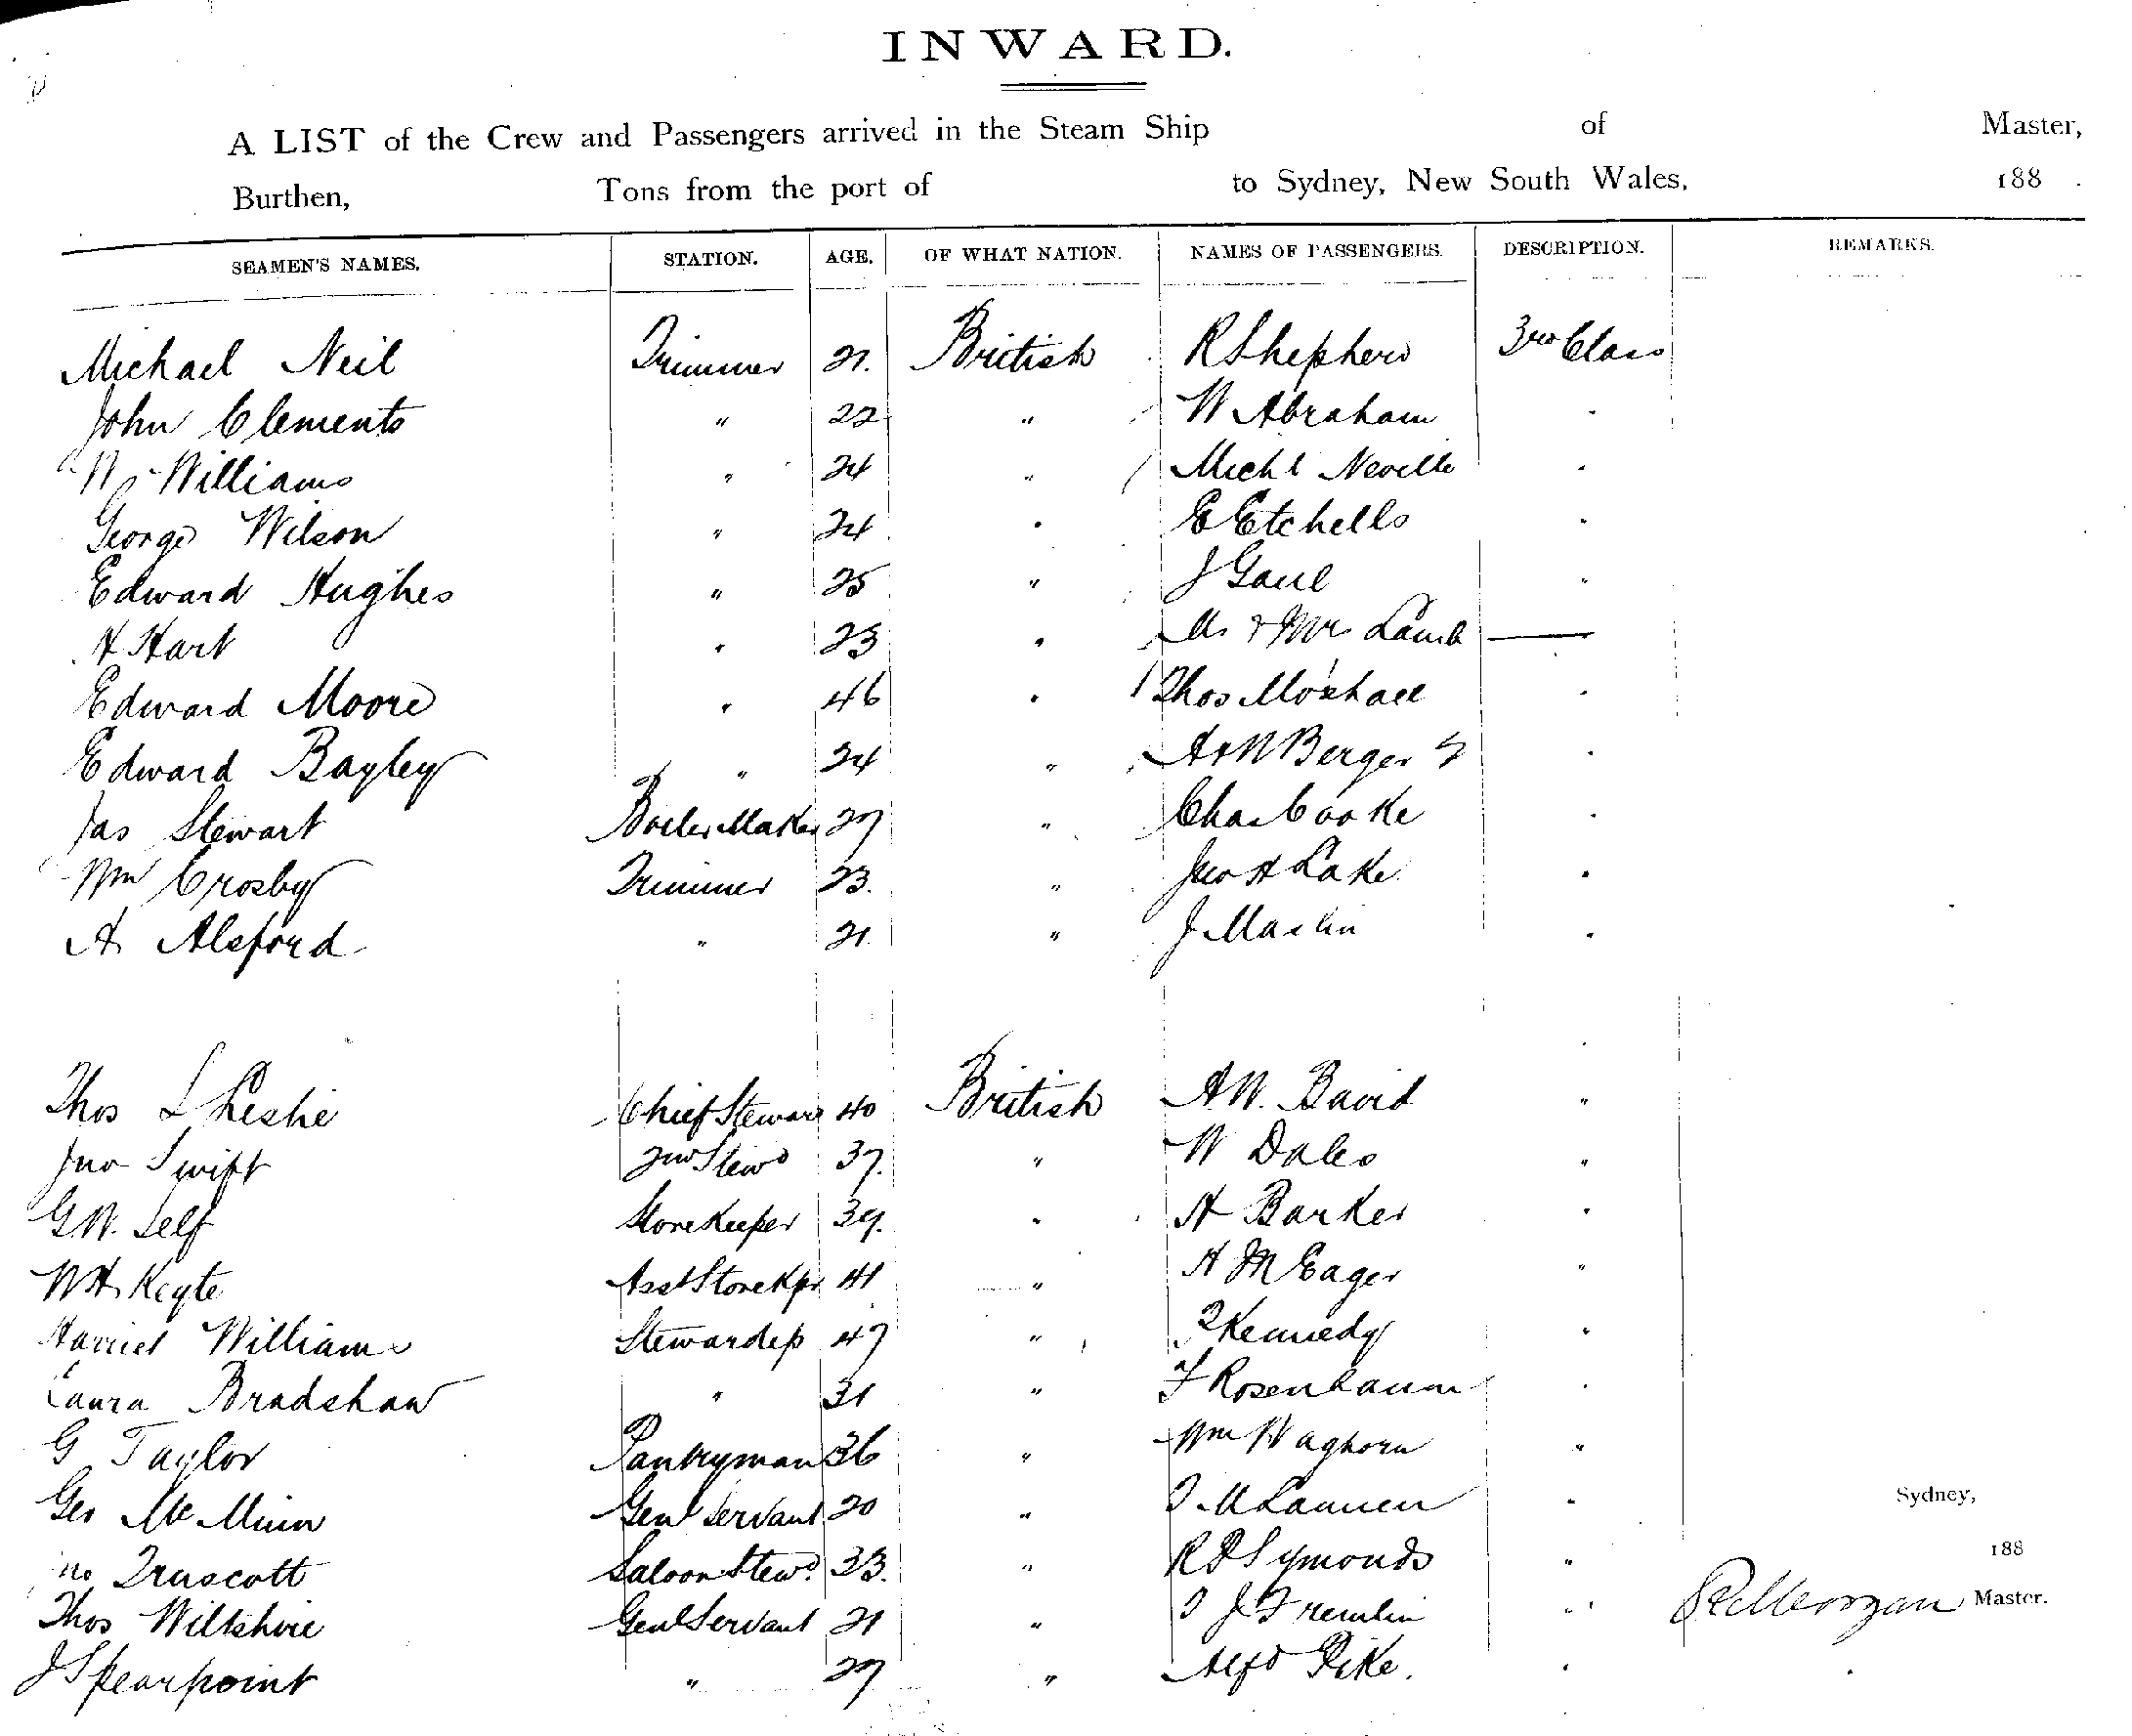 INWARD.
A LIST of the Crew and Passengers arrived in the Steam Ship of Master,
Burthen, Tons from the port of to Sydney, New South Wales, 188 .
SEAMEN'S NAMES. STATION. AGE. OF WHAT NATION. NAMES OF PASSENGERS. DESCRIPTION. REMARKS.
Michael Neil Trimmer 21. British R Shepherd 3rd Class
John Clements " 22 " W Abraham "
W Williams " 24 " Michl Neville "
George Wilson " 24 " E Etchells "
Edward Hughes " 25 " J Gaul "
H Hart " 23 " Mr & Mrs Lamb —
Edward Moore " 46 " Thos "
Edward Bayley " 24 " Berger "
Jas Stewart Boiler Maker 27 " Chas Cooke "
Wm Crosby Trimmer 23. " Jno H Lake "
A Alsford " 21. " J Maslin "
Thos L Leslie Chief Steward 40 British A.W. David "
Jno Swift 2nd Stewd 37. " W Dales "
G.W. Self Storekeeper 39. " A Barker "
W H Keyte Asst Storekpr 41 " H M Eager "
Harriet Williams Stewardess 47 " Kennedy "
Laura Bradshaw " 31 " F Rosenbaum "
G Taylor Pantryman 36 " Wm Waghorn "
Geo McMinn Genl Servant 20 " "
Sydney,
Jno Truscott Saloon Stewd. 33. " R D Symonds "
188
Thos Wiltshire Genl Servant 21 " J Fremlin "
Morgan Master.
J Spearpoint " 27 " Alfd Pike. "